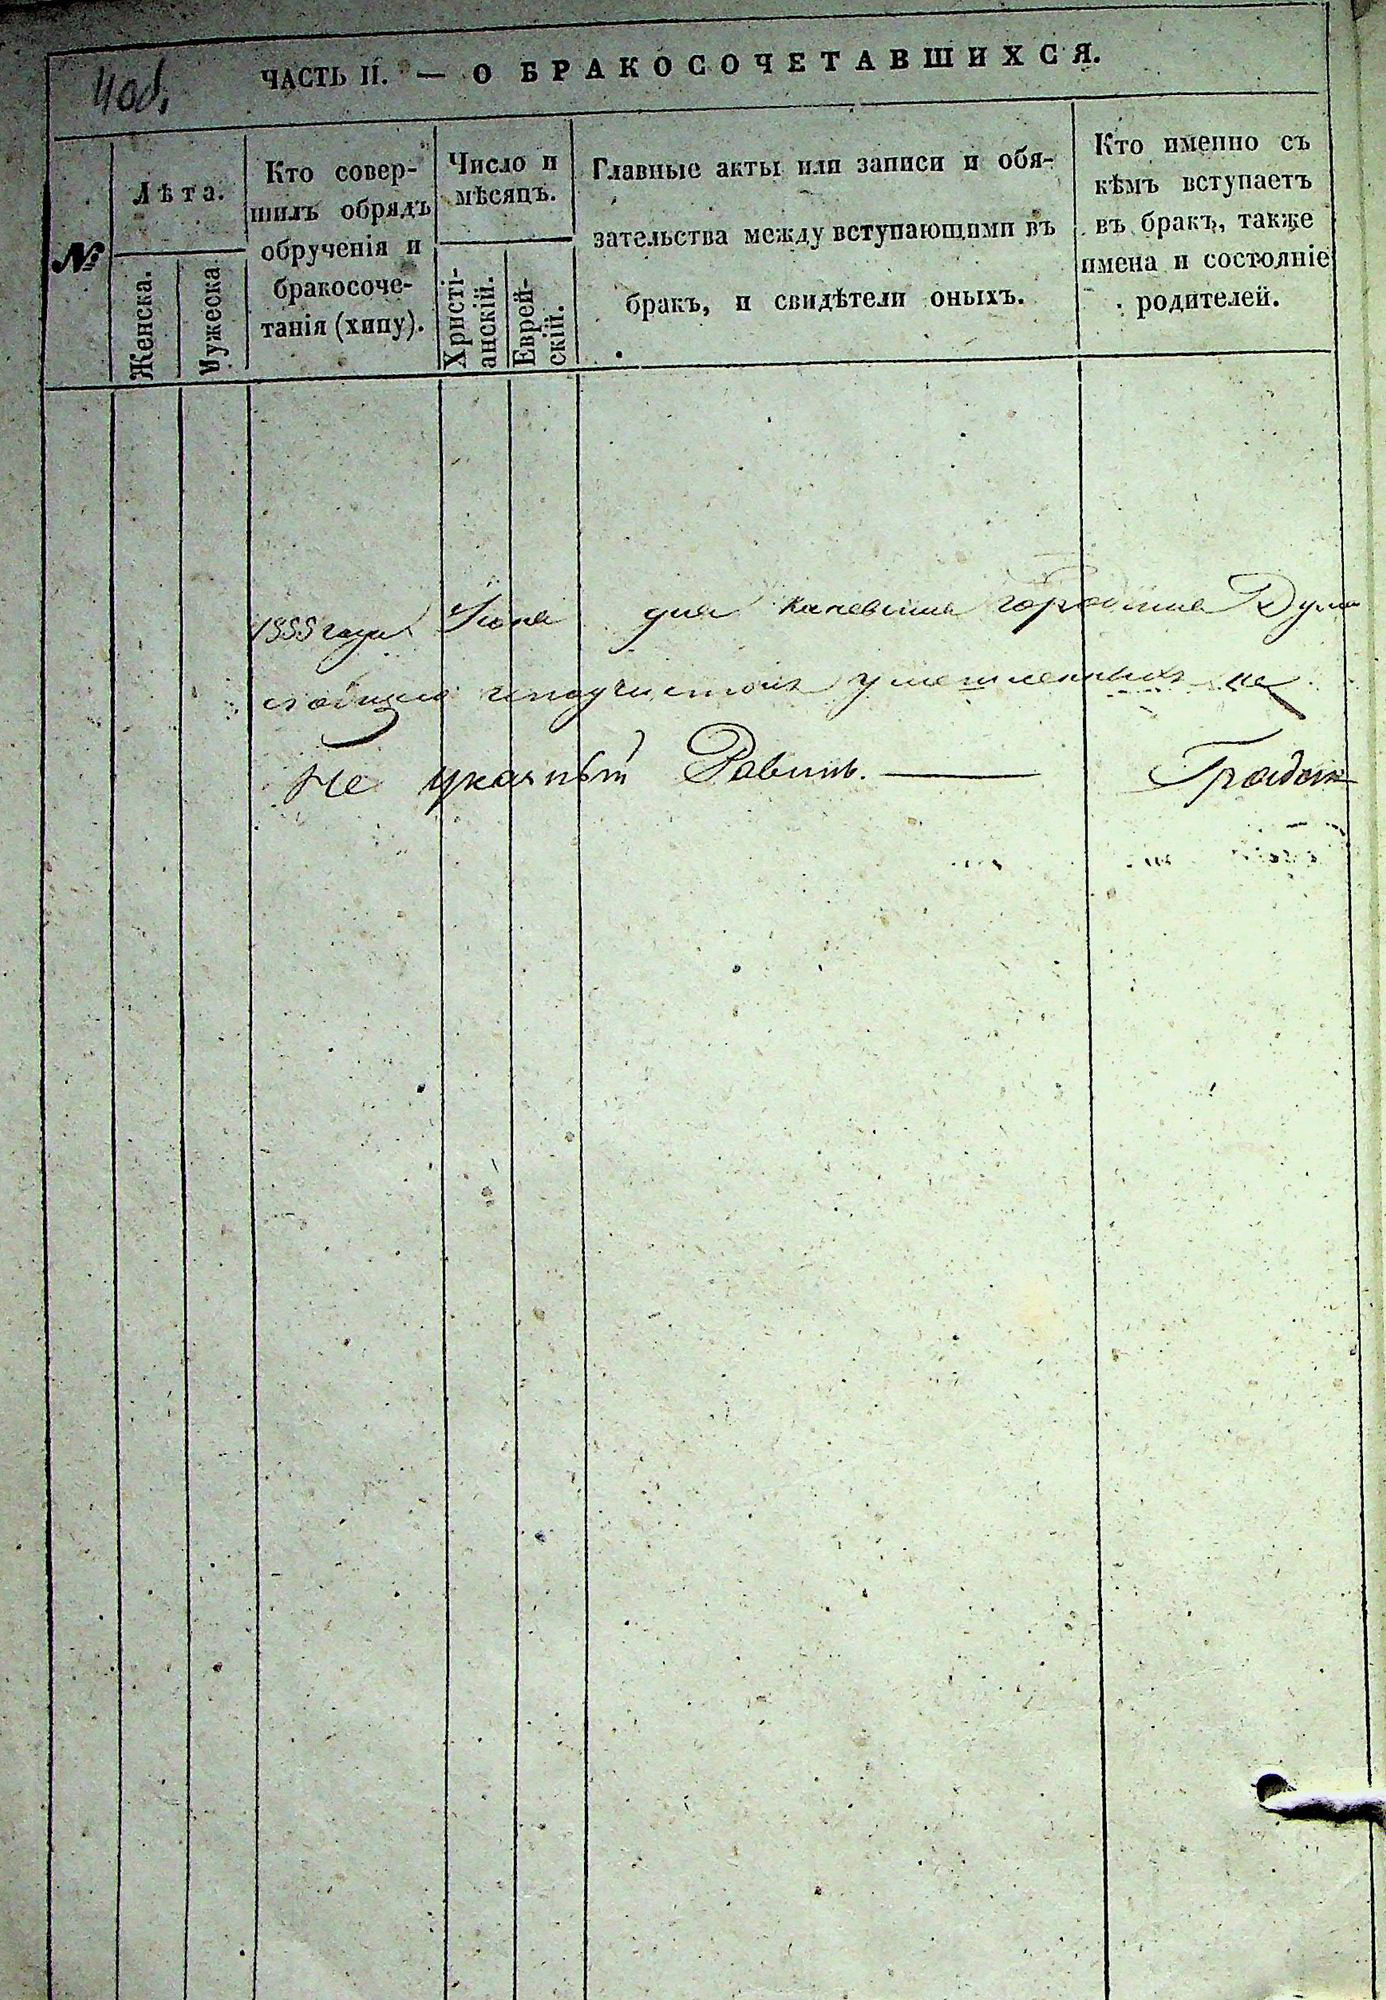 4об.
ЧАСТЬ II. — О БРАКОСОЧЕТАВШИХСЯ.
№
Лѣта.
Женска.
Мужеска
Кто совер-
шилъ обрядъ
обрученія и
бракосоче-
танія (хипу).
Число и
мѣсяцъ.
Христі-
анскій.
Еврей-
скій.
Главные акты или записи и обя-
зательства между вступающими въ
бракъ, и свидѣтели оныхъ.
Кто именно съ
кѣмъ вступаетъ
въ бракъ, также
имена и состояніе
родителей.
1855 года Іюня дня Каневская городская Дума
не
Не указный Равинъ. —